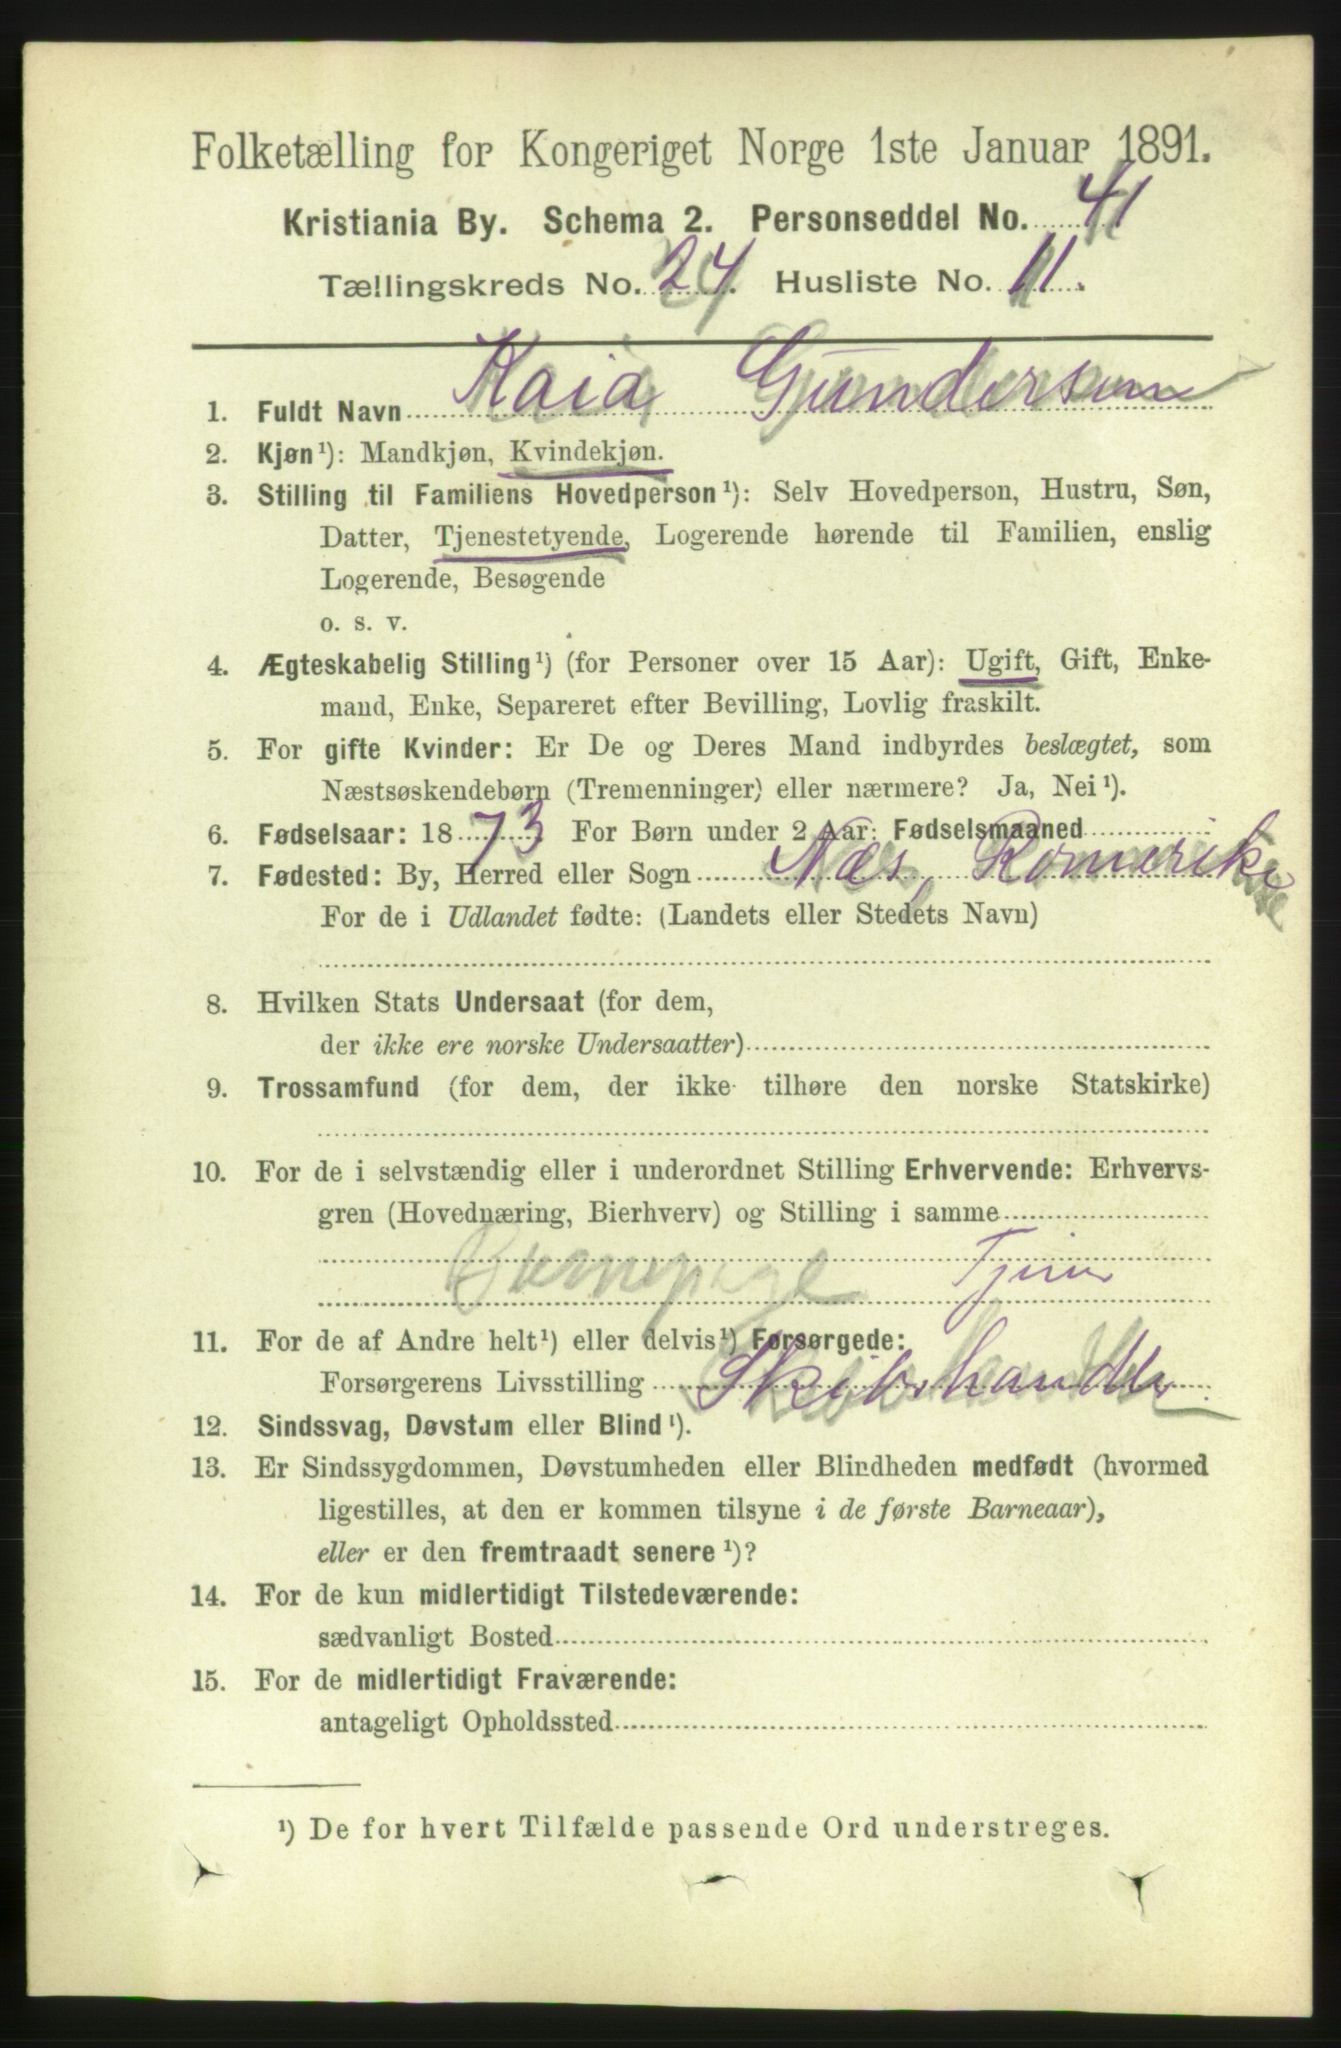 Folketælling for Kongeriget Norge 1ste Januar 1891.
Kristiania By. Schema 2. Personseddel No. 41
Tællingskreds No. 24. Husliste No. 11.
1. Fuldt Navn Kaia Gundersen
2. Kjøn¹): Mandkjøn, Kvindekjøn.
3. Stilling til Familiens Hovedperson¹): Selv Hovedperson, Hustru, Søn,
Datter, Tjenestetyende, Logerende hørende til Familien, enslig
Logerende, Besøgende
o. s. v.
4. Ægteskabelig Stilling¹) (for Personer over 15 Aar): Ugift, Gift, Enke-
mand, Enke, Separeret efter Bevilling, Lovlig fraskilt.
5. For gifte Kvinder: Er De og Deres Mand indbyrdes beslægtet, som
Næstsøskendebørn (Tremenninger) eller nærmere? Ja, Nei¹).
6. Fødselsaar: 1873 For Børn under 2 Aar: Fødselsmaaned
7. Fødested: By, Herred eller Sogn Næs, Romerike
For de i Udlandet fødte: (Landets eller Stedets Navn)
8. Hvilken Stats Undersaat (for dem,
der ikke ere norske Undersaatter)
9. Trossamfund (for dem, der ikke tilhøre den norske Statskirke)
10. For de i selvstændig eller i underordnet Stilling Erhvervende: Erhvervs-
gren (Hovednæring, Bierhverv) og Stilling i samme
Barnepige
11. For de af Andre helt¹) eller delvis¹) Forsørgede:
Forsørgerens Livsstilling Skibshandler
12. Sindssvag, Døvstum eller Blind¹).
13. Er Sindssygdommen, Døvstumheden eller Blindheden medfødt (hvormed
ligestilles, at den er kommen tilsyne i de første Barneaar),
eller er den fremtraadt senere¹)?
14. For de kun midlertidigt Tilstedeværende:
sædvanligt Bosted
15. For de midlertidigt Fraværende:
antageligt Opholdssted
¹) De for hvert Tilfælde passende Ord understreges.